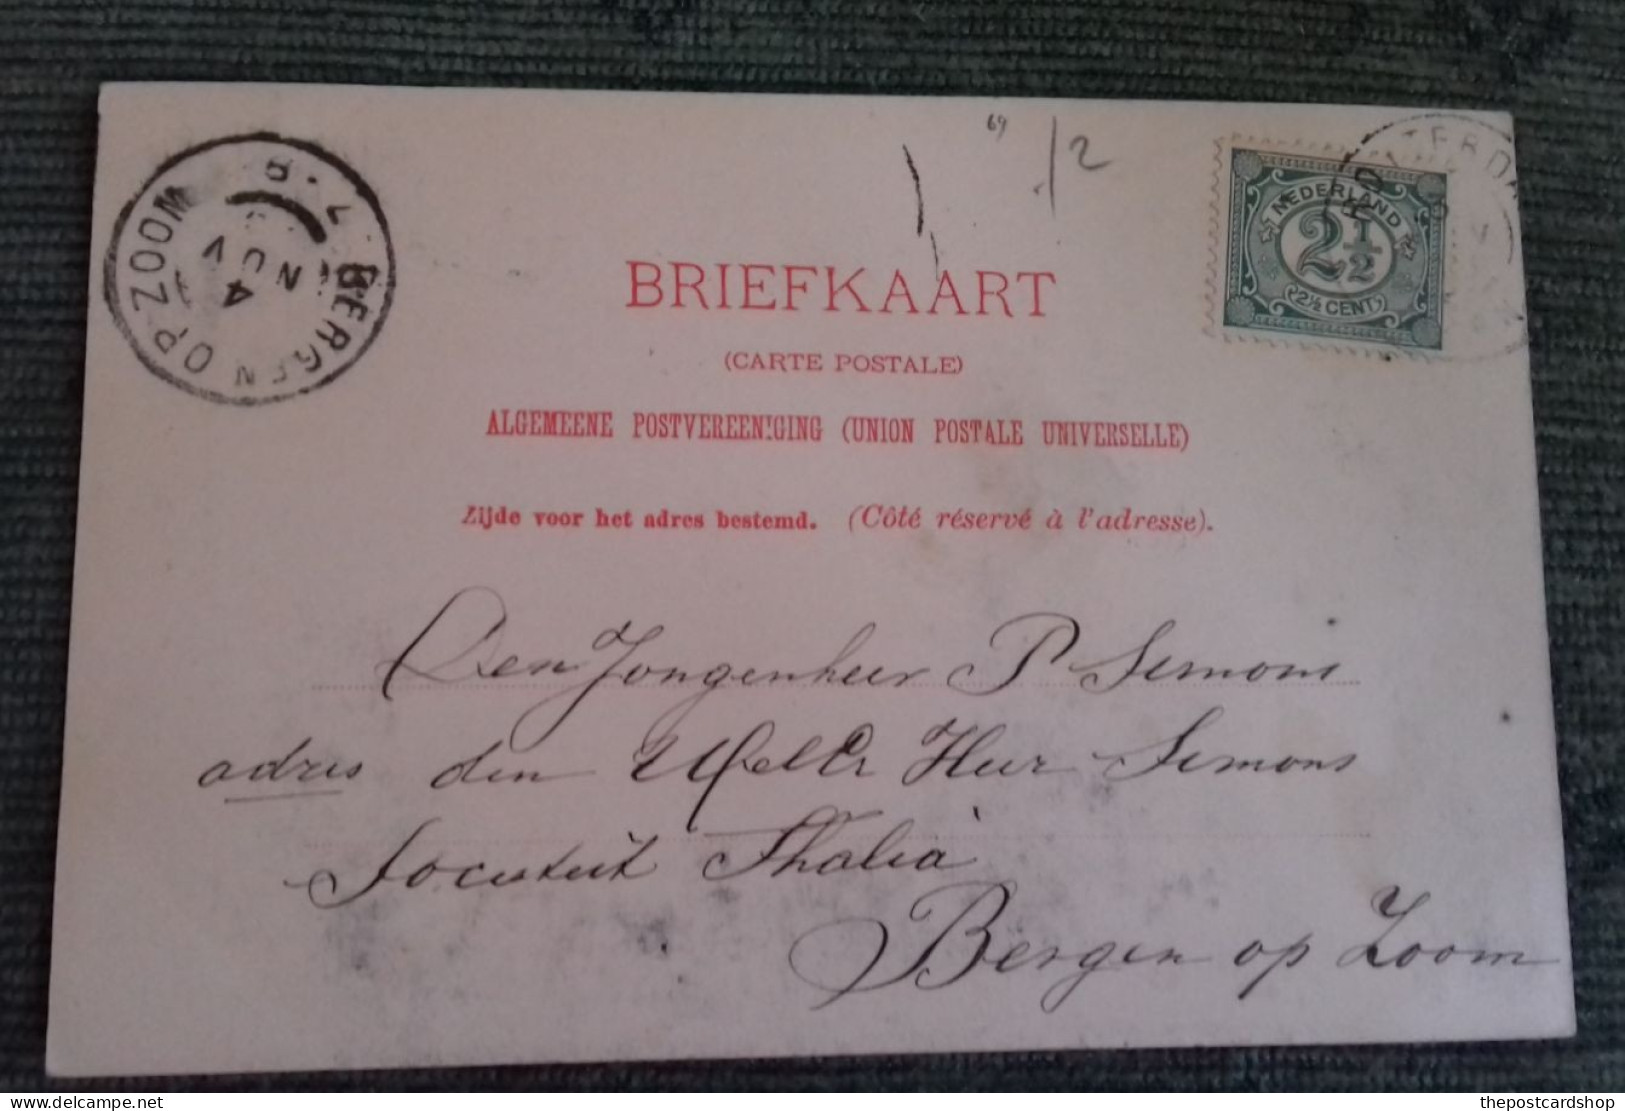 69 1/2
BERGEN OP ZOOM
4 NOV
7-8
NEDERLAND
2½
2½ CENT
BRIEFKAART
(CARTE POSTALE)
ALGEMEENE POSTVEREENIGING (UNION POSTALE UNIVERSELLE)
Zijde voor het adres bestemd. (Côté réservé à l'adresse).
Den Jongenheer P Semons
adres den WelEr Heer Semons
Societeit Thalia
Bergen op Zoom
thepostcardshop
delcampe.net